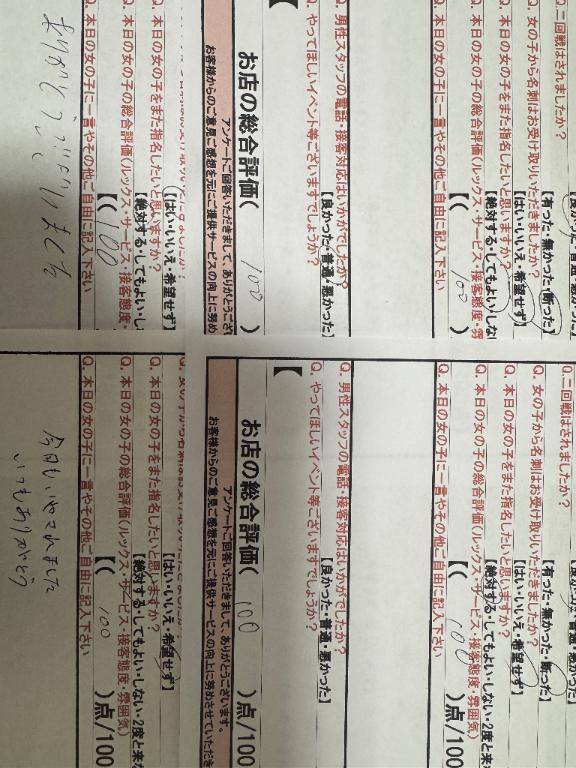 Q. 二回戦はされましたか？
【有った・無かった・断った】
Q. 女の子から名刺はお受け取りいただきましたか？
【はい・いいえ・希望せず】
Q. 本日の女の子をまた指名したいと思いますか？
【絶対する・してもよい・しな
Q. 本日の女の子の総合評価（ルックス・サービス・接客態度・雰
【（ 100
Q. 本日の女の子に一言やその他ご自由に記入下さい
Q. 男性スタッフの電話・接客対応はいかがでしたか？
【良かった・普通・悪かった】
Q. やってほしいイベント等ございますでしょうか？
【
お店の総合評価（ 100 ）
アンケートご回答いただきまして、ありがとうござ
お客様からのご意見ご感想を元にご提供サービスの向上に努め
【はい・いいえ・希望せず】
Q. 本日の女の子をまた指名したいと思いますか？
【絶対する・してもよい・し
Q. 本日の女の子の総合評価（ルックス・サービス・接客態度・
【（ 100
Q. 本日の女の子に一言やその他ご自由に記入下さい
ありがとうございました
Q. 二回戦はされましたか？
【有った・無かった・断った】
Q. 女の子から名刺はお受け取りいただきましたか？
【はい・いいえ・希望せず】
Q. 本日の女の子をまた指名したいと思いますか？
【絶対する・してもよい・しない・2度と来
Q. 本日の女の子の総合評価（ルックス・サービス・接客態度・雰囲気）
【（ 100 ）点/100
Q. 本日の女の子に一言やその他ご自由に記入下さい
Q. 男性スタッフの電話・接客対応はいかがでしたか？
【良かった・普通・悪かった】
Q. やってほしいイベント等ございますでしょうか？
【
お店の総合評価（ 100 ）点/100
アンケートご回答いただきまして、ありがとうございます。
お客様からのご意見ご感想を元にご提供サービスの向上に努めさせていただき
【はい・いいえ・希望せず】
Q. 本日の女の子をまた指名したいと思いますか？
【絶対する・してもよい・しない・2度と来な
Q. 本日の女の子の総合評価（ルックス・サービス・接客態度・雰囲気）
【（ 100 ）点/100
Q. 本日の女の子に一言やその他ご自由に記入下さい
今日もいやされました
いつもありがとう